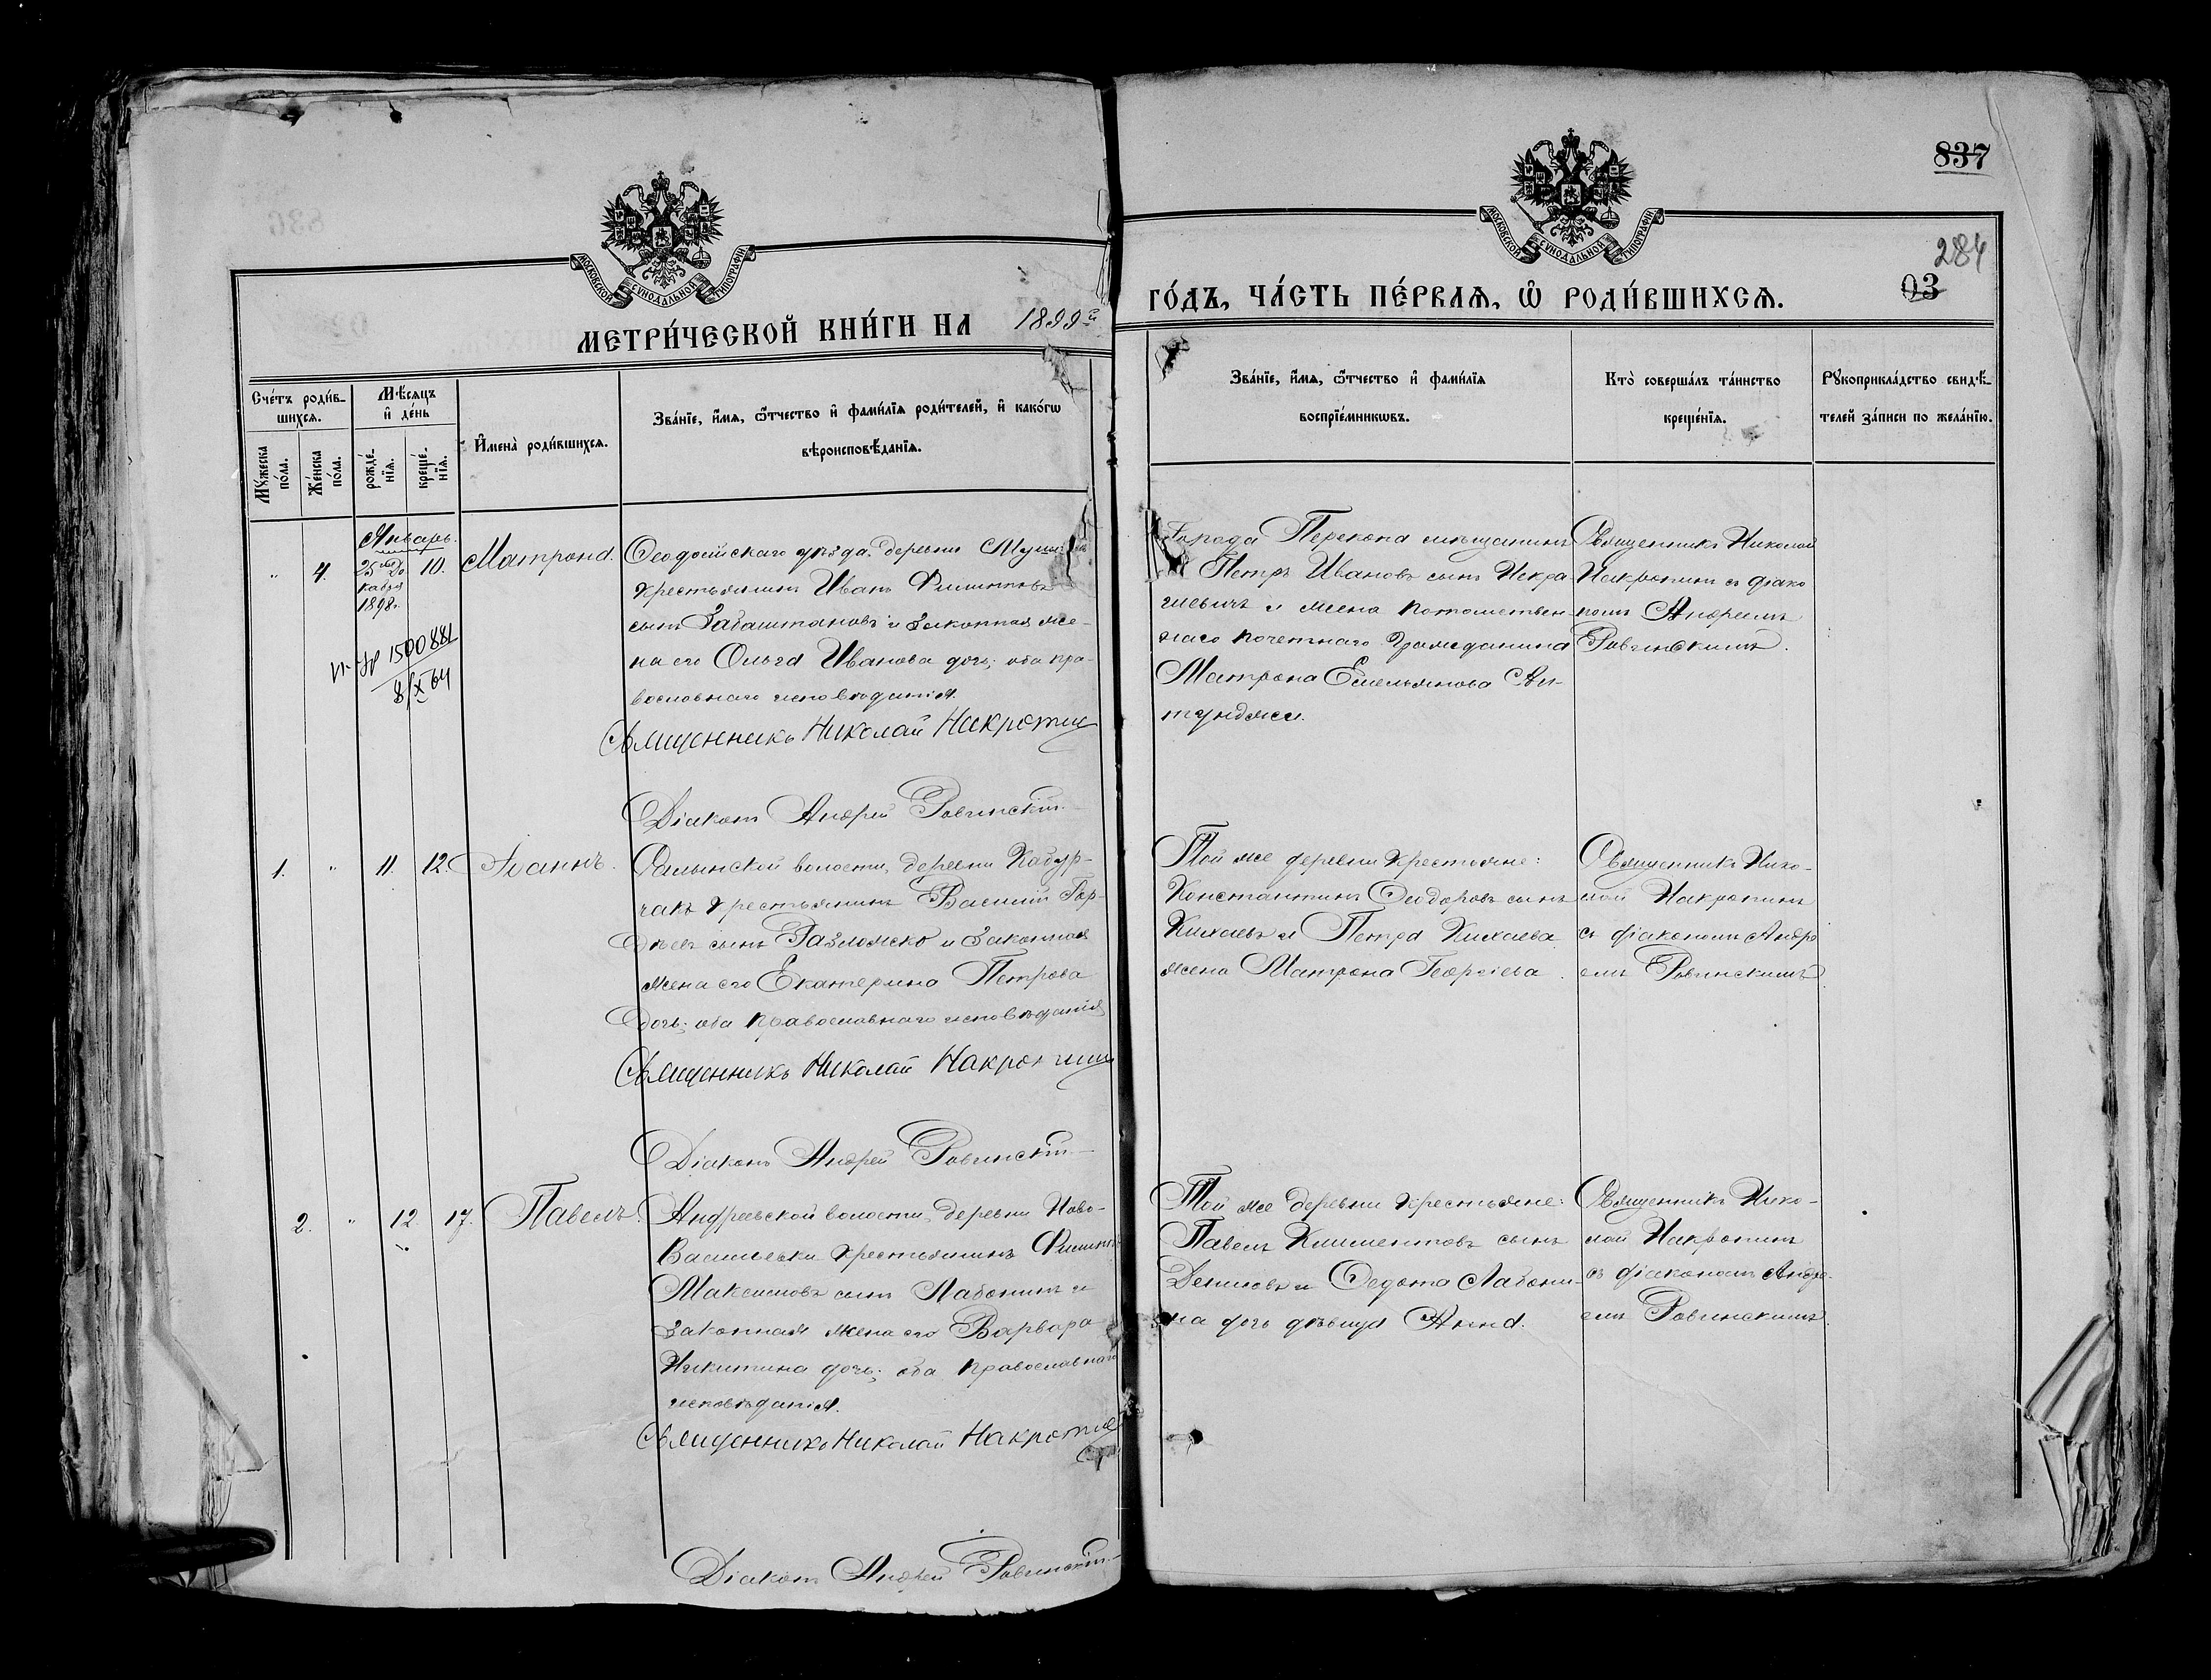 837
284
03
МОСКОВСКОЙ СУНОДАЛЬНОЙ ТИПОГРАФІИ
МОСКОВСКОЙ СУНОДАЛЬНОЙ ТИПОГРАФІИ
МЕТРИ́ЧЕСКОЙ КНИ́ГИ НА 1899й
ГО́ДЪ, ЧА́СТЬ ПЕ́РВАЯ, Ѽ РОДИ́ВШИХСЯ.
Сче́тъ роди́в-
шихся.
Му́жеска по́ла.
Же́нска по́ла.
Мѣ́сяцъ
и҆ де́нь
рожде́-
нїя.
креще́-
нїя.
И҆мена̀ роди́вшихся.
Зва́нїе, и҆́мя, ѻ҆́тчество и҆ фами́лїя роди́телей, и҆ како́гѡ
вѣроисповѣ́данїя.
Зва́нїе, и҆́мя, ѻ҆́тчество и҆ фами́лїя
воспрїе́мникѡвъ.
Кто̀ соверша́лъ та́инство
креще́нїя.
Рꙋкоприкла́дство свидѣ́-
телей за́писи по жела́нїю.
Январь.
" 4. 25го Де-
кабря
1898г. 10. Матрона.
1500881
8/X 64
Ѳеодосійскаго уѣзда деревни
крестьянинъ Иванъ Филипповъ
сынъ Забаштановъ и законная же-
на его Ольга Иванова дочь; оба пра-
вославнаго исповѣданія.
Священникъ Николай Накропин
Діаконъ Андрей Ровинскій
Города Перекопа мѣщанинъ
Петръ Ивановъ сынъ Искра-
и жена потомствен-
наго почетнаго гражданина
Матрона Емельянова
Священникъ Николай
Накропинъ съ діако
номъ Андреемъ
Ровинскимъ.
1. " 11. 12. Іоаннъ.
волости, деревни Кабур-
чакъ крестьянинъ Василій Гор-
дѣевъ сынъ Разломско и законная
жена его Екатерина Петрова
дочь; оба православнаго исповѣданія
Священникъ Николай Накропин
Діаконъ Андрей Ровинскій
Той же деревни крестьяне:
Константинъ Ѳеодоровъ сынъ
Кихаевъ и Петра Кихаева
жена Матрона Георгіева.
Священникъ Нико-
лай Накропинъ
съ діакономъ Андре
емъ Ровинскимъ.
2. " 12. 17. Павелъ.
Андреевской волости, деревни Ново-
Васильевки крестьянинъ Филиппъ
Максимовъ сынъ Лабонинъ и
законная жена его Варвара
Никитина дочь; оба православнаго
исповѣданія.
Священникъ Николай Накропин
Діаконъ Андрей Ровинскій
Той же деревни крестьяне:
Павелъ Климентовъ сынъ
Денисовъ и Ѳедота Лабони-
на дочь дѣвица Анна.
Священникъ Нико-
лай Накропинъ
съ діакономъ Андре-
емъ Ровинскимъ.